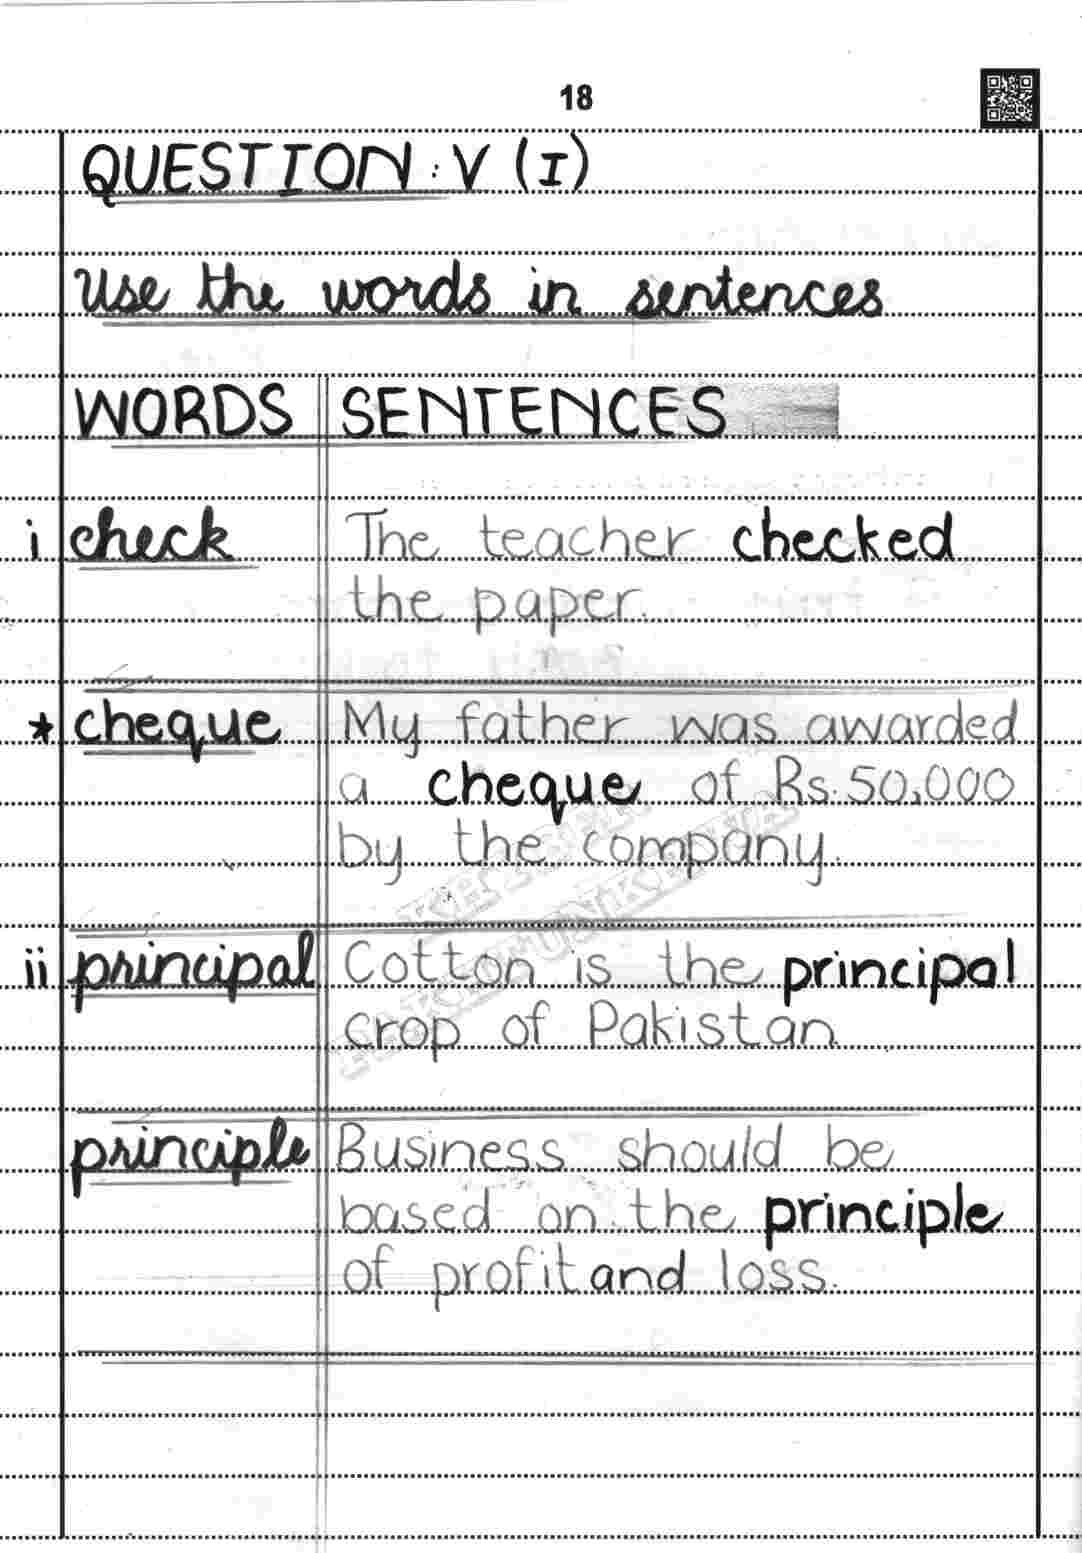 18
QUESTION : V (I)
Use the words in sentences
WORDS SENTENCES
i check The teacher checked
the paper.
* cheque My father was awarded
a cheque of Rs.50,000
by the company.
KHYBER
PAKHTUNKHWA
ii principal Cotton is the principal
crop of Pakistan.
principle Business should be
based on the principle
of profit and loss.